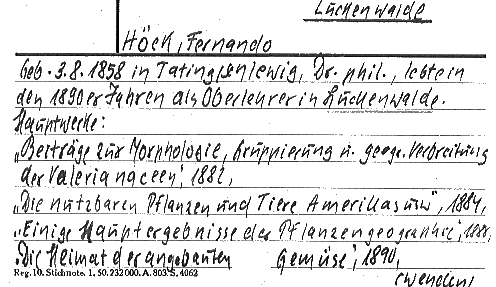 Luckenwalde
Höck, Fernando
Geb. 3.8.1858 in Dr. phil., lebte in
den 1890er Jahren als Oberlehrer in Luckenwalde.
Hauptwerke:
„Beiträge zur Morphologie, Gruppierung u. geogr. Verbreitung
der Valerianaceen", 1882,
„Die nutzbaren Pflanzen und Tiere Amerikas usw", 1884,
„Einige Hauptergebnisse der Pflanzengeographie",
„Die Heimat der angebauten Gemüse", 1890,
Reg. 10. Stichnote. 1. 50. 232000. A. 803 S. 4062
(wenden)